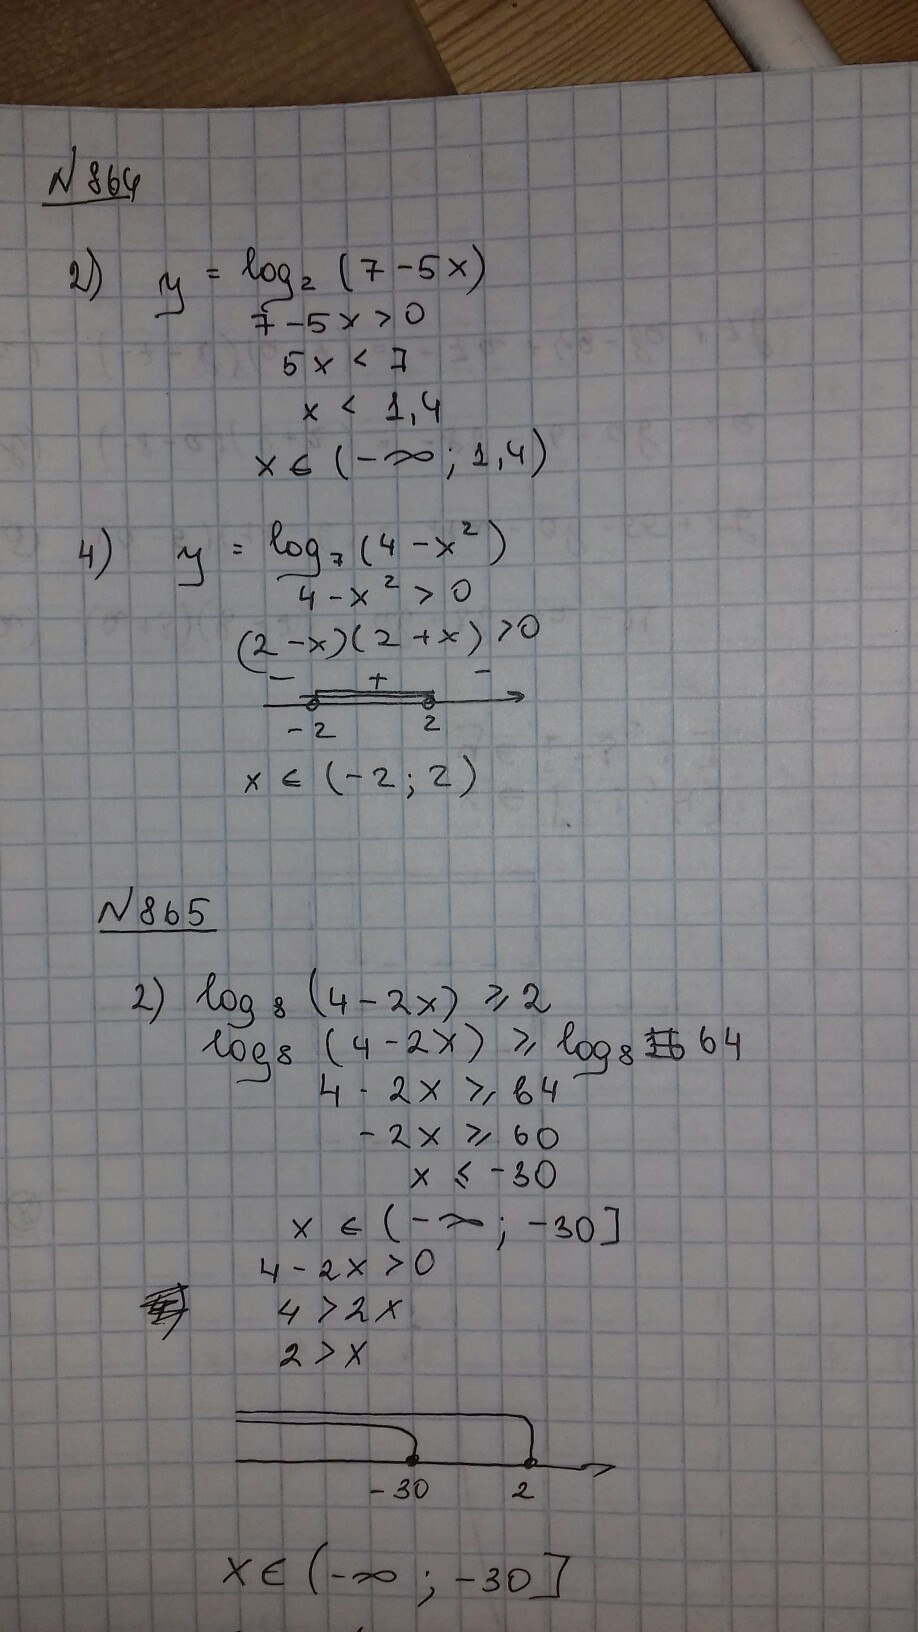 N 864
2) y = log₂ (7 - 5x)
7 - 5x > 0
5x < 7
x < 1,4
x ∈ (-∞; 1,4)
4) y = log₇ (4 - x²)
4 - x² > 0
(2 - x)(2 + x) > 0
- + -
-2 2
x ∈ (-2; 2)
N 865
2) log₈ (4 - 2x) ⩾ 2
log₈ (4 - 2x) ⩾ log₈ 64
4 - 2x ⩾ 64
-2x ⩾ 60
x ⩽ -30
x ∈ (-∞; -30]
4 - 2x > 0
4 > 2x
2 > x
-30 2
x ∈ (-∞; -30]